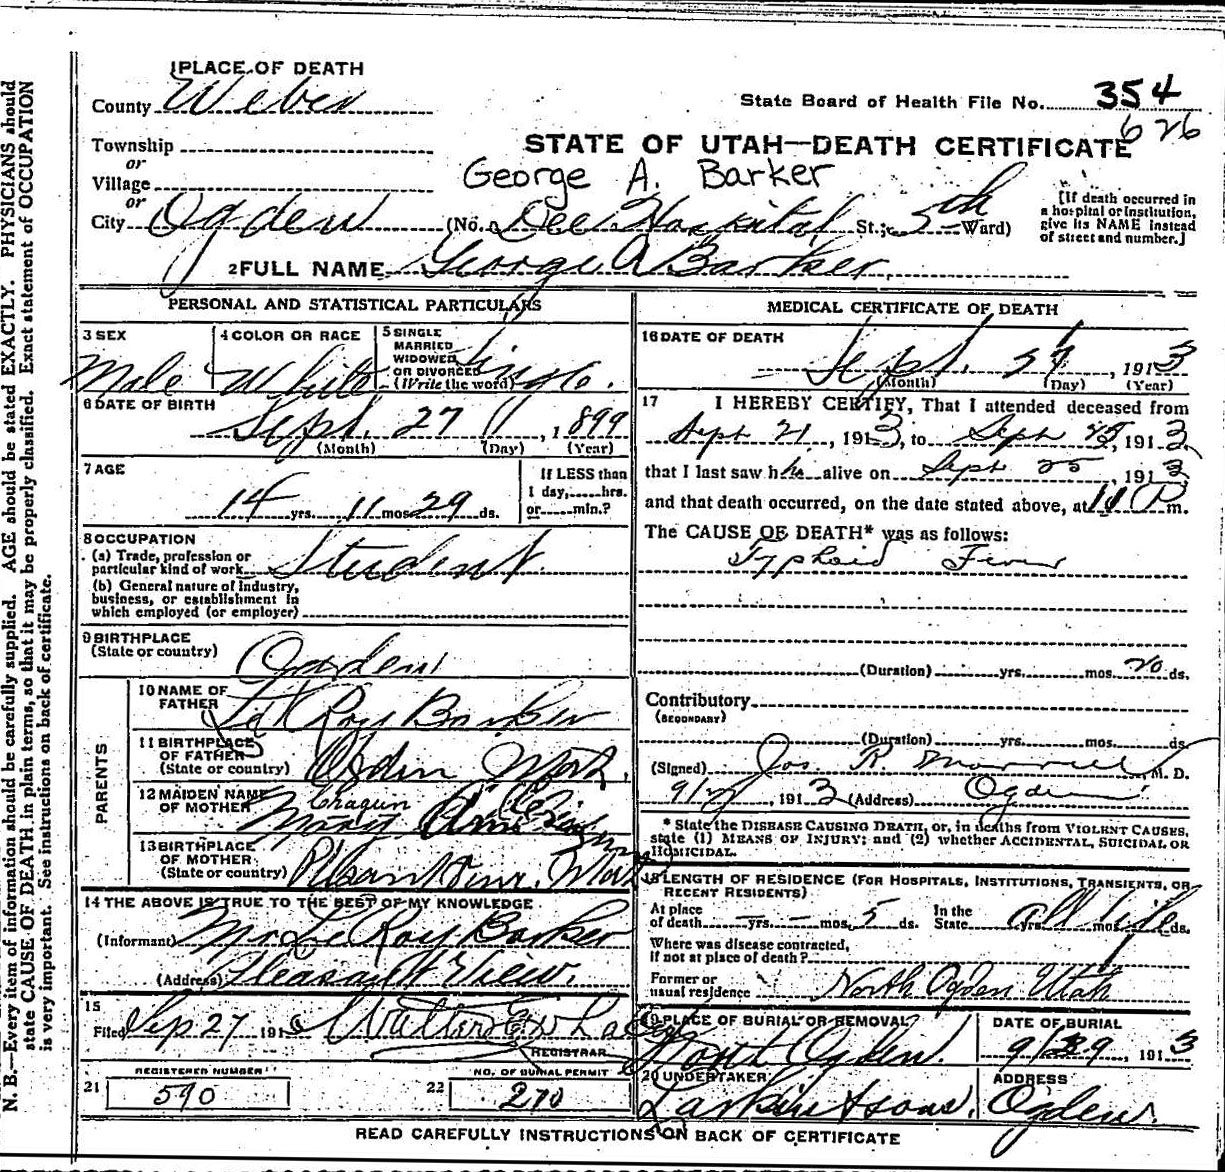 1 PLACE OF DEATH
County Weber
State Board of Health File No. 354
626
Township
or
Village
or
STATE OF UTAH—DEATH CERTIFICATE
George A. Barker
City Ogden (No. Dee Hospital St.; 5th Ward)
[If death occurred in
a hospital or institution,
give its NAME instead
of street and number.]
2 FULL NAME George A Barker
PERSONAL AND STATISTICAL PARTICULARS
3 SEX
Male
4 COLOR OR RACE
White
5 SINGLE
MARRIED
WIDOWED
OR DIVORCED
(Write the word)
Single.
6 DATE OF BIRTH
Sept. 27, 1899
(Month) (Day) (Year)
7 AGE
14 yrs. 11 mos. 29 ds.
If LESS than
1 day, hrs.
or min.?
8 OCCUPATION
(a) Trade, profession or
particular kind of work Student
(b) General nature of industry,
business, or establishment in
which employed (or employer)
9 BIRTHPLACE
(State or country) Ogden
PARENTS
10 NAME OF
FATHER
Le Roy Barker
11 BIRTHPLACE
OF FATHER
(State or country) Ogden
12 MAIDEN NAME
OF MOTHER
Mary
13 BIRTHPLACE
OF MOTHER
(State or country)
14 THE ABOVE IS TRUE TO THE BEST OF MY KNOWLEDGE
(Informant) Mr Le Roy Barker
(Address) Pleasant View.
15
Filed Sep 27 1913 Walter
REGISTRAR
REGISTERED NUMBER
21 590
NO. OF BURIAL PERMIT
22 270
MEDICAL CERTIFICATE OF DEATH
16 DATE OF DEATH
Sept. 27, 1913
(Month) (Day) (Year)
17 I HEREBY CERTIFY, That I attended deceased from
Sept 21, 1913, to Sept 25, 1913
that I last saw him alive on Sept 25, 1913
and that death occurred, on the date stated above, at 11 P m.
The CAUSE OF DEATH* was as follows:
Typhoid Fever
(Duration) yrs. mos. 20 ds.
Contributory
(SECONDARY)
(Duration) yrs. mos. ds.
(Signed) Jos. R. Morrell M. D.
9/27, 1913 (Address) Ogden
* State the DISEASE CAUSING DEATH, or, in deaths from VIOLENT CAUSES,
state (1) MEANS OF INJURY; and (2) whether ACCIDENTAL, SUICIDAL OR
HOMICIDAL.
18 LENGTH OF RESIDENCE (FOR HOSPITALS, INSTITUTIONS, TRANSIENTS, OR
RECENT RESIDENTS)
At place
of death yrs. mos. 5 ds.
In the
State all life yrs. mos. ds.
Where was disease contracted,
if not at place of death?
Former or
usual residence North Ogden Utah
19 PLACE OF BURIAL OR REMOVAL
North Ogden.
DATE OF BURIAL
9/29, 1913
20 UNDERTAKER
Larkin & sons.
ADDRESS
Ogden.
READ CAREFULLY INSTRUCTIONS ON BACK OF CERTIFICATE
N. B.—Every item of information should be carefully supplied. AGE should be stated EXACTLY. PHYSICIANS should
state CAUSE OF DEATH in plain terms, so that it may be properly classified. Exact statement of OCCUPATION
is very important. See instructions on back of certificate.